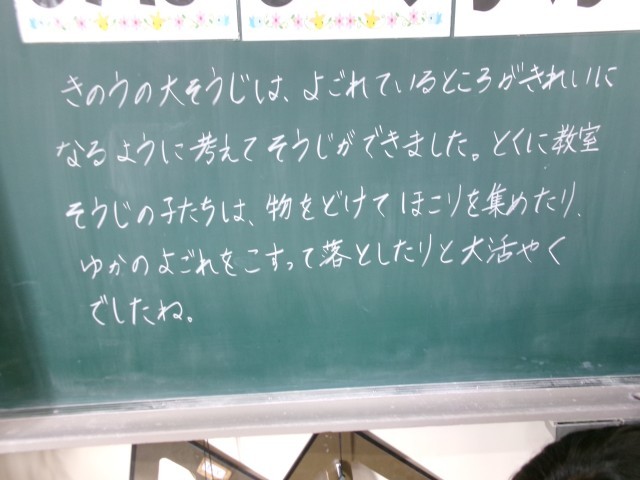 きのうの大そうじは、よごれているところがきれいに
なるように考えてそうじができました。とくに教室
そうじの子たちは、物をどけてほこりを集めたり、
ゆかのよごれをこすって落としたりと大活やく
でしたね。